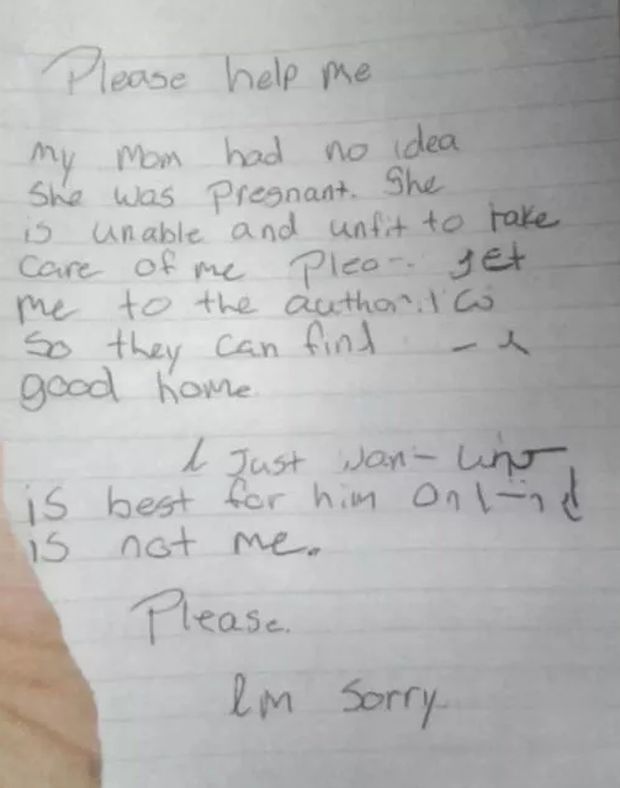 Please help me
my mom had no idea
She was pregnant. She
is unable and unfit to take
care of me get
me to the
So they can find
good home
I Just
is best for him
is not me.
Please.
Im Sorry